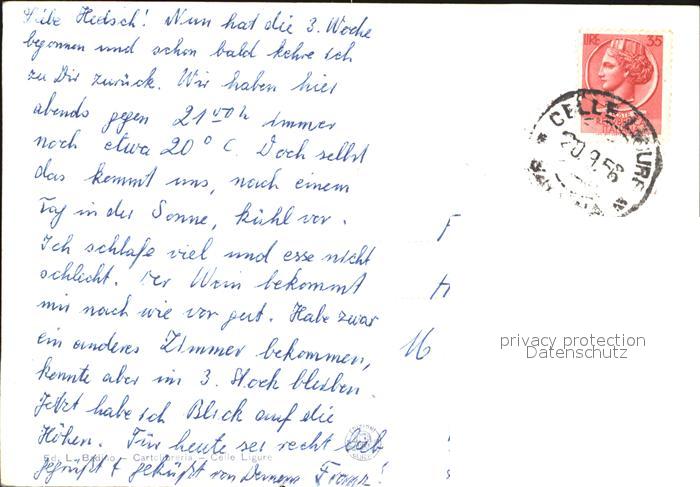 Liebe Hedsch! Nun hat die 3. Woche
begonnen und schon bald kehre ich
zu Dir zurück. Wir haben hier
abends gegen 21 00 h immer
noch etwa 20° C. Doch selbst
das kommt uns, nach einem
Tag in der Sonne, kühl vor.
Ich schlafe viel und esse nicht
schlecht. Der Wein bekommt
mir nach wie vor gut. Habe zwar
ein anderes Zimmer bekommen,
konnte aber im 3. Stock bleiben.
Jetzt habe ich Blick auf die
Höhen. Für heute sei recht lieb
gegrüßt + geküßt von Deinem Franz!
Ed. L. Bodino - Cartolibreria - Celle Ligure
LIRE 35
CELLE LIGURE
20.9.56
F
H
16
privacy protection
Datenschutz